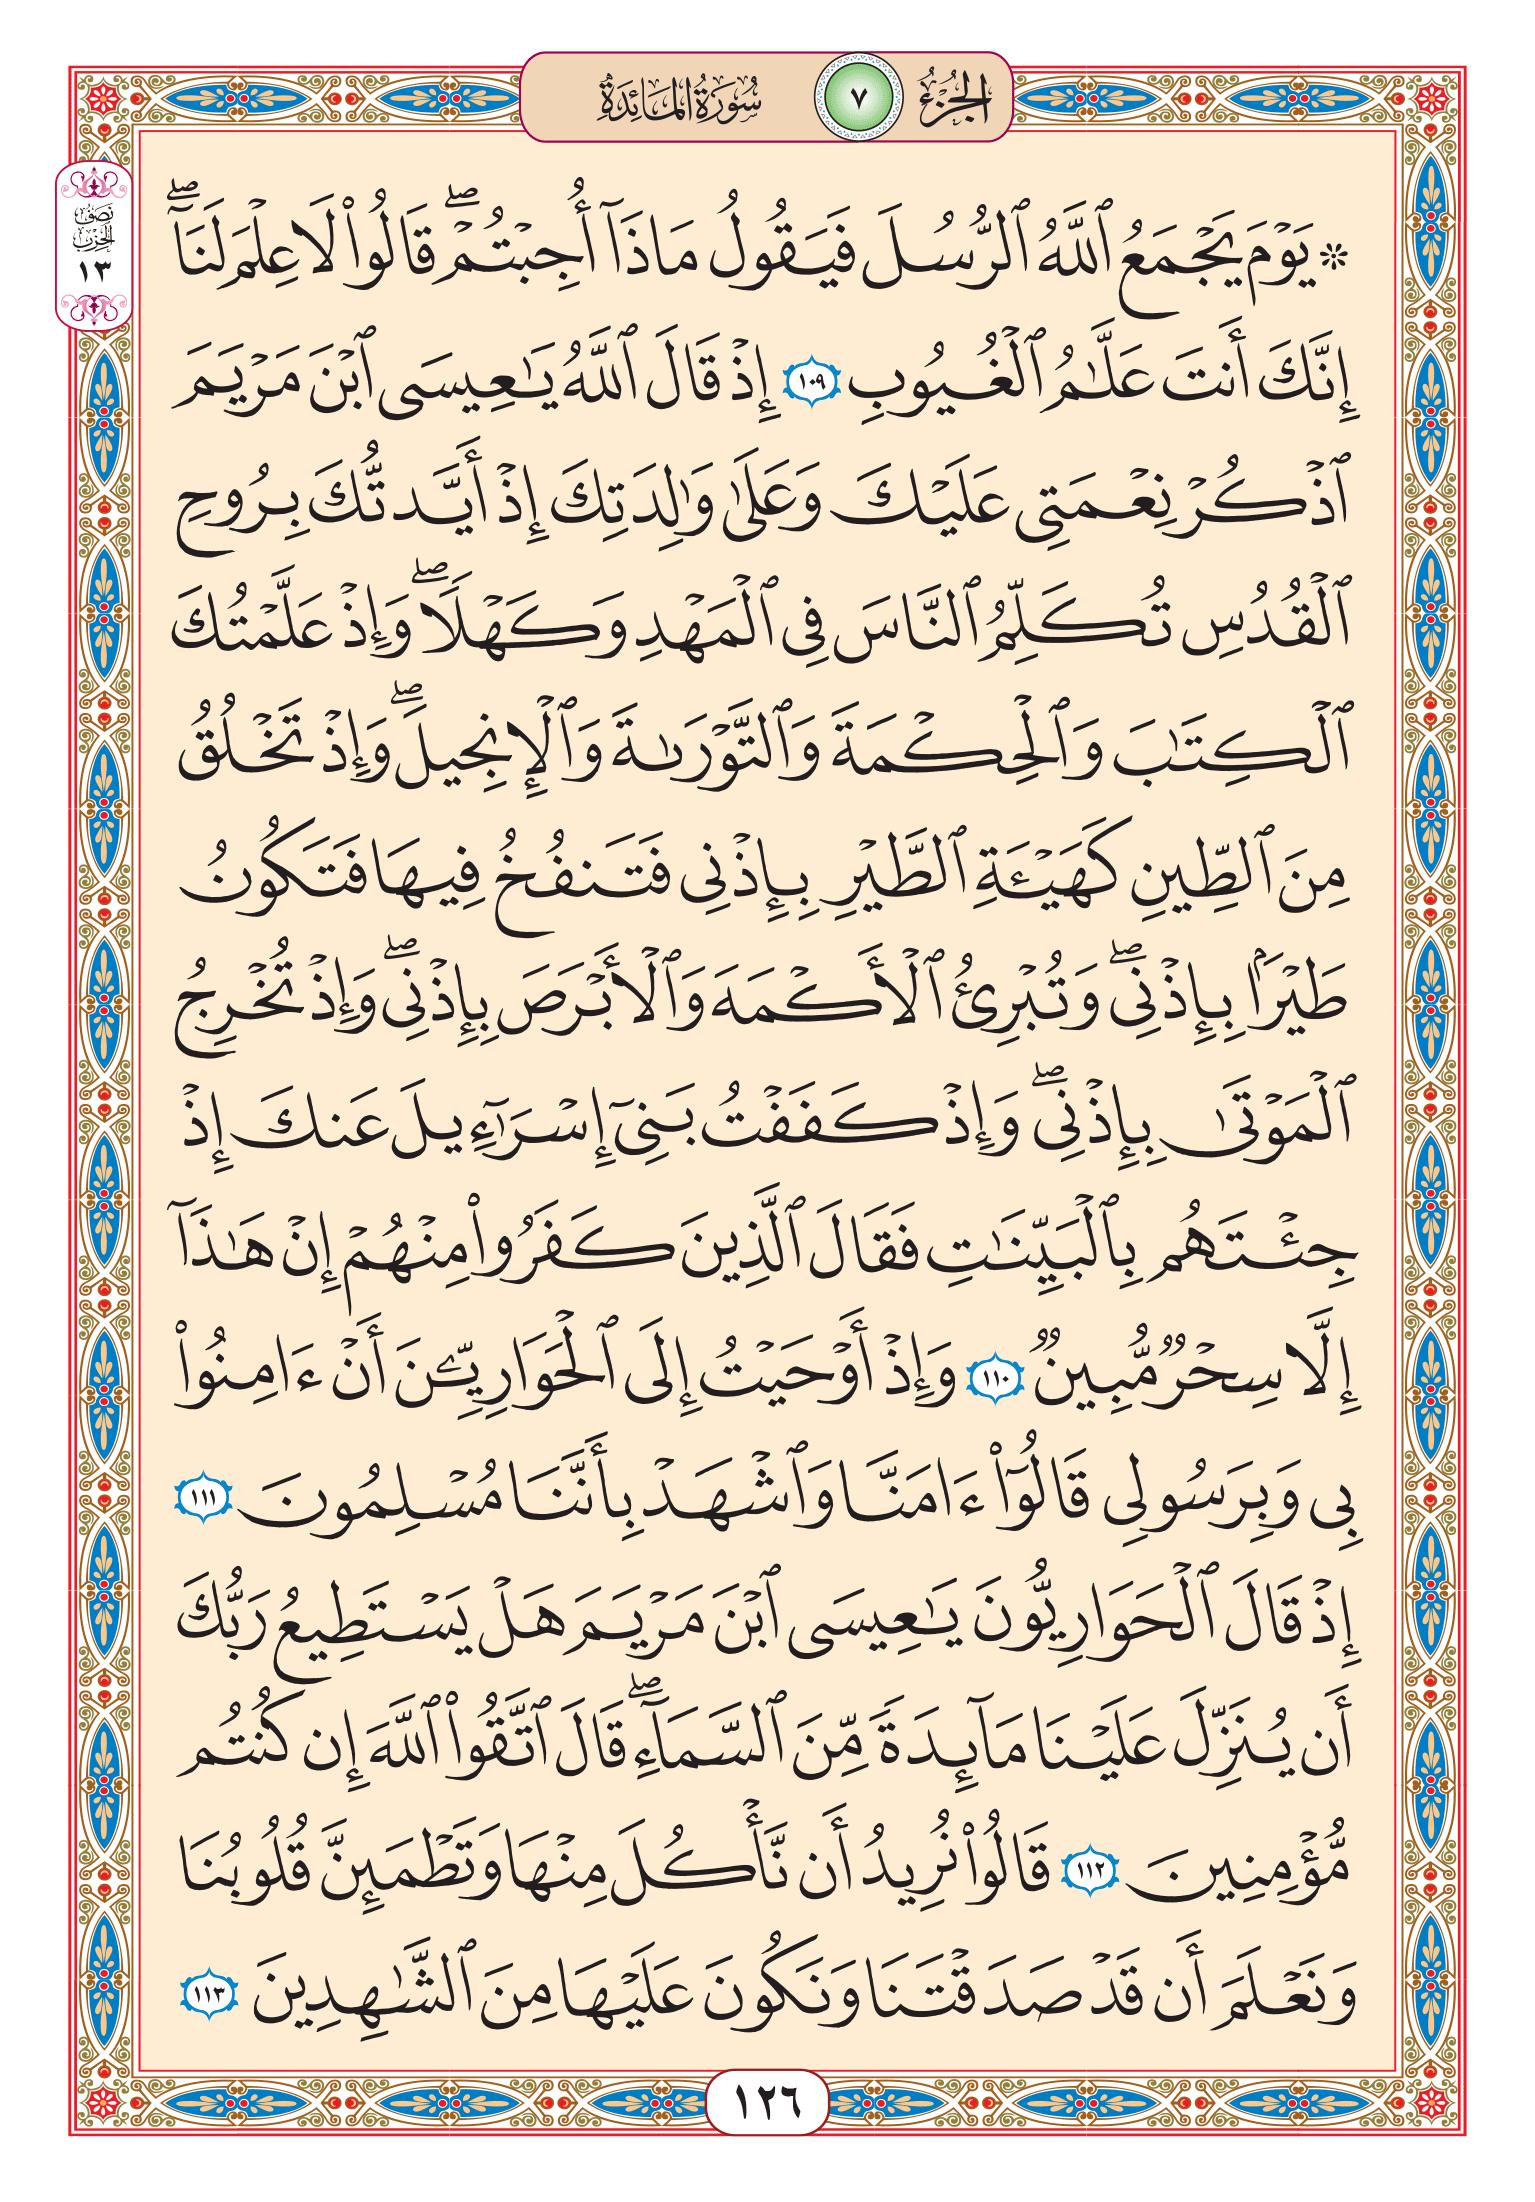 الجزء ٧ سورة المائدة
نصف
الحزب
١٣
۞ يَوْمَ يَجْمَعُ ٱللَّهُ ٱلرُّسُلَ فَيَقُولُ مَاذَآ أُجِبْتُمْ ۖ قَالُوا۟ لَا عِلْمَ لَنَآ ۖ
إِنَّكَ أَنتَ عَلَّـٰمُ ٱلْغُيُوبِ ١٠٩ إِذْ قَالَ ٱللَّهُ يَـٰعِيسَى ٱبْنَ مَرْيَمَ
ٱذْكُرْ نِعْمَتِى عَلَيْكَ وَعَلَىٰ وَٰلِدَتِكَ إِذْ أَيَّدتُّكَ بِرُوحِ
ٱلْقُدُسِ تُكَلِّمُ ٱلنَّاسَ فِى ٱلْمَهْدِ وَكَهْلًا ۖ وَإِذْ عَلَّمْتُكَ
ٱلْكِتَـٰبَ وَٱلْحِكْمَةَ وَٱلتَّوْرَىٰةَ وَٱلْإِنجِيلَ ۖ وَإِذْ تَخْلُقُ
مِنَ ٱلطِّينِ كَهَيْـَٔةِ ٱلطَّيْرِ بِإِذْنِى فَتَنفُخُ فِيهَا فَتَكُونُ
طَيْرًۢا بِإِذْنِى ۖ وَتُبْرِئُ ٱلْأَكْمَهَ وَٱلْأَبْرَصَ بِإِذْنِى ۖ وَإِذْ تُخْرِجُ
ٱلْمَوْتَىٰ بِإِذْنِى ۖ وَإِذْ كَفَفْتُ بَنِىٓ إِسْرَٰٓءِيلَ عَنكَ إِذْ
جِئْتَهُم بِٱلْبَيِّنَـٰتِ فَقَالَ ٱلَّذِينَ كَفَرُوا۟ مِنْهُمْ إِنْ هَـٰذَآ
إِلَّا سِحْرٌ مُّبِينٌ ١١٠ وَإِذْ أَوْحَيْتُ إِلَى ٱلْحَوَارِيِّـۧنَ أَنْ ءَامِنُوا۟
بِى وَبِرَسُولِى قَالُوٓا۟ ءَامَنَّا وَٱشْهَدْ بِأَنَّنَا مُسْلِمُونَ ١١١
إِذْ قَالَ ٱلْحَوَارِيُّونَ يَـٰعِيسَى ٱبْنَ مَرْيَمَ هَلْ يَسْتَطِيعُ رَبُّكَ
أَن يُنَزِّلَ عَلَيْنَا مَآئِدَةً مِّنَ ٱلسَّمَآءِ ۖ قَالَ ٱتَّقُوا۟ ٱللَّهَ إِن كُنتُم
مُّؤْمِنِينَ ١١٢ قَالُوا۟ نُرِيدُ أَن نَّأْكُلَ مِنْهَا وَتَطْمَئِنَّ قُلُوبُنَا
وَنَعْلَمَ أَن قَدْ صَدَقْتَنَا وَنَكُونَ عَلَيْهَا مِنَ ٱلشَّـٰهِدِينَ ١١٣
١٢٦